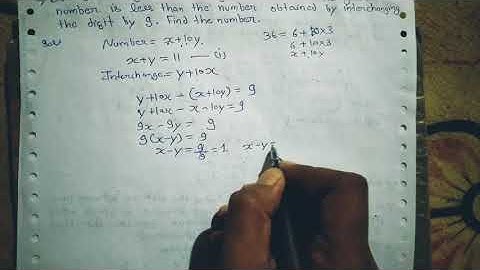 number is less than the number obtained by interchanging
the digit by 9. Find the number.
Number = x+10y
36 = 6+10×3
6+10×3
x+10y
x+y = 11 — (i)
Interchange = y+10x
y+10x - (x+10y) = 9
y+10x - x-10y = 9
9x-9y = 9
9(x-y) = 9
x-y = 9/9 = 1 x-y=